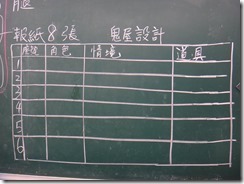 報紙8張 鬼屋設計
角色 情境 道具
1
2
3
4
5
6